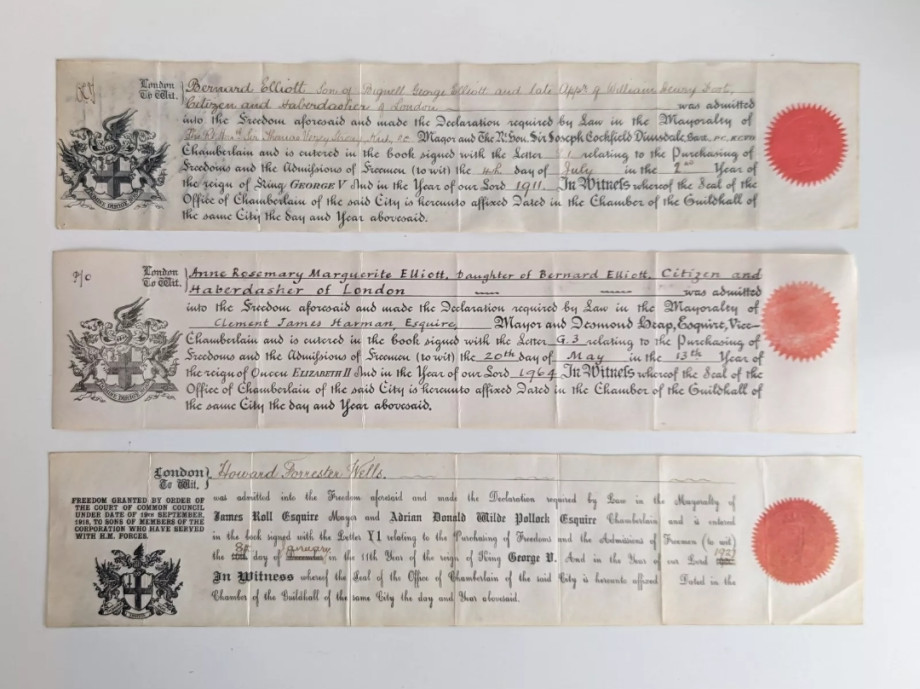 London
To Wit.
Bernard Elliott Son of Bignell George Elliott and late Appe of William Henry
Citizen and Haberdasher of London was admitted
into the Freedom aforesaid and made the Declaration required by Law in the Mayoralty of
Sir Thomas Mayor and The Rt. Hon. Sir Joseph Cockfield Dimsdale Bart. P.C. K.C.V.O.
Chamberlain and is entered in the book signed with the Letter relating to the Purchasing of
Freedoms and the Admissions of Freemen (to wit) the 4th day of July in the 2nd Year of
the reign of King GEORGE V And in the Year of our Lord 1911. In Witness whereof the Seal of the
Office of Chamberlain of the said City is hereunto affixed Dated in the Chamber of the Guildhall of
the same City the day and Year abovesaid.
P/C
London
To Wit.
Anne Rosemary Marguerite Elliott, Daughter of Bernard Elliott, Citizen and
Haberdasher of London was admitted
into the Freedom aforesaid and made the Declaration required by Law in the Mayoralty of
Clement James Harman, Esquire, Mayor and Desmond Heap, Esquire, Vice-
Chamberlain and is entered in the book signed with the Letter G.3 relating to the Purchasing of
Freedoms and the Admissions of Freemen (to wit) the 20th day of May in the 13th Year of
the reign of Queen ELIZABETH II And in the Year of our Lord 1964 In Witness whereof the Seal of the
Office of Chamberlain of the said City is hereunto affixed Dated in the Chamber of the Guildhall of
the same City the day and Year abovesaid.
London
To Wit.
Howard Forrester Wells.
FREEDOM GRANTED BY ORDER OF
THE COURT OF COMMON COUNCIL
UNDER DATE OF 19TH SEPTEMBER,
1918, TO SONS OF MEMBERS OF THE
CORPORATION WHO HAVE SERVED
WITH H.M. FORCES.
was admitted into the Freedom aforesaid and made the Declaration required by Law in the Mayoralty of
James Roll Esquire Mayor and Adrian Donald Wilde Pollock Esquire Chamberlain and is entered
in the book signed with the Letter Y1 relating to the Purchasing of Freedoms and the Admissions of Freemen (to wit)
the day of January in the 11th Year of the reign of King George V. And in the Year of our Lord 1921
In Witness whereof the Seal of the Office of Chamberlain of the said City is hereunto affixed Dated in the
Chamber of the Guildhall of the same City the day and Year abovesaid.